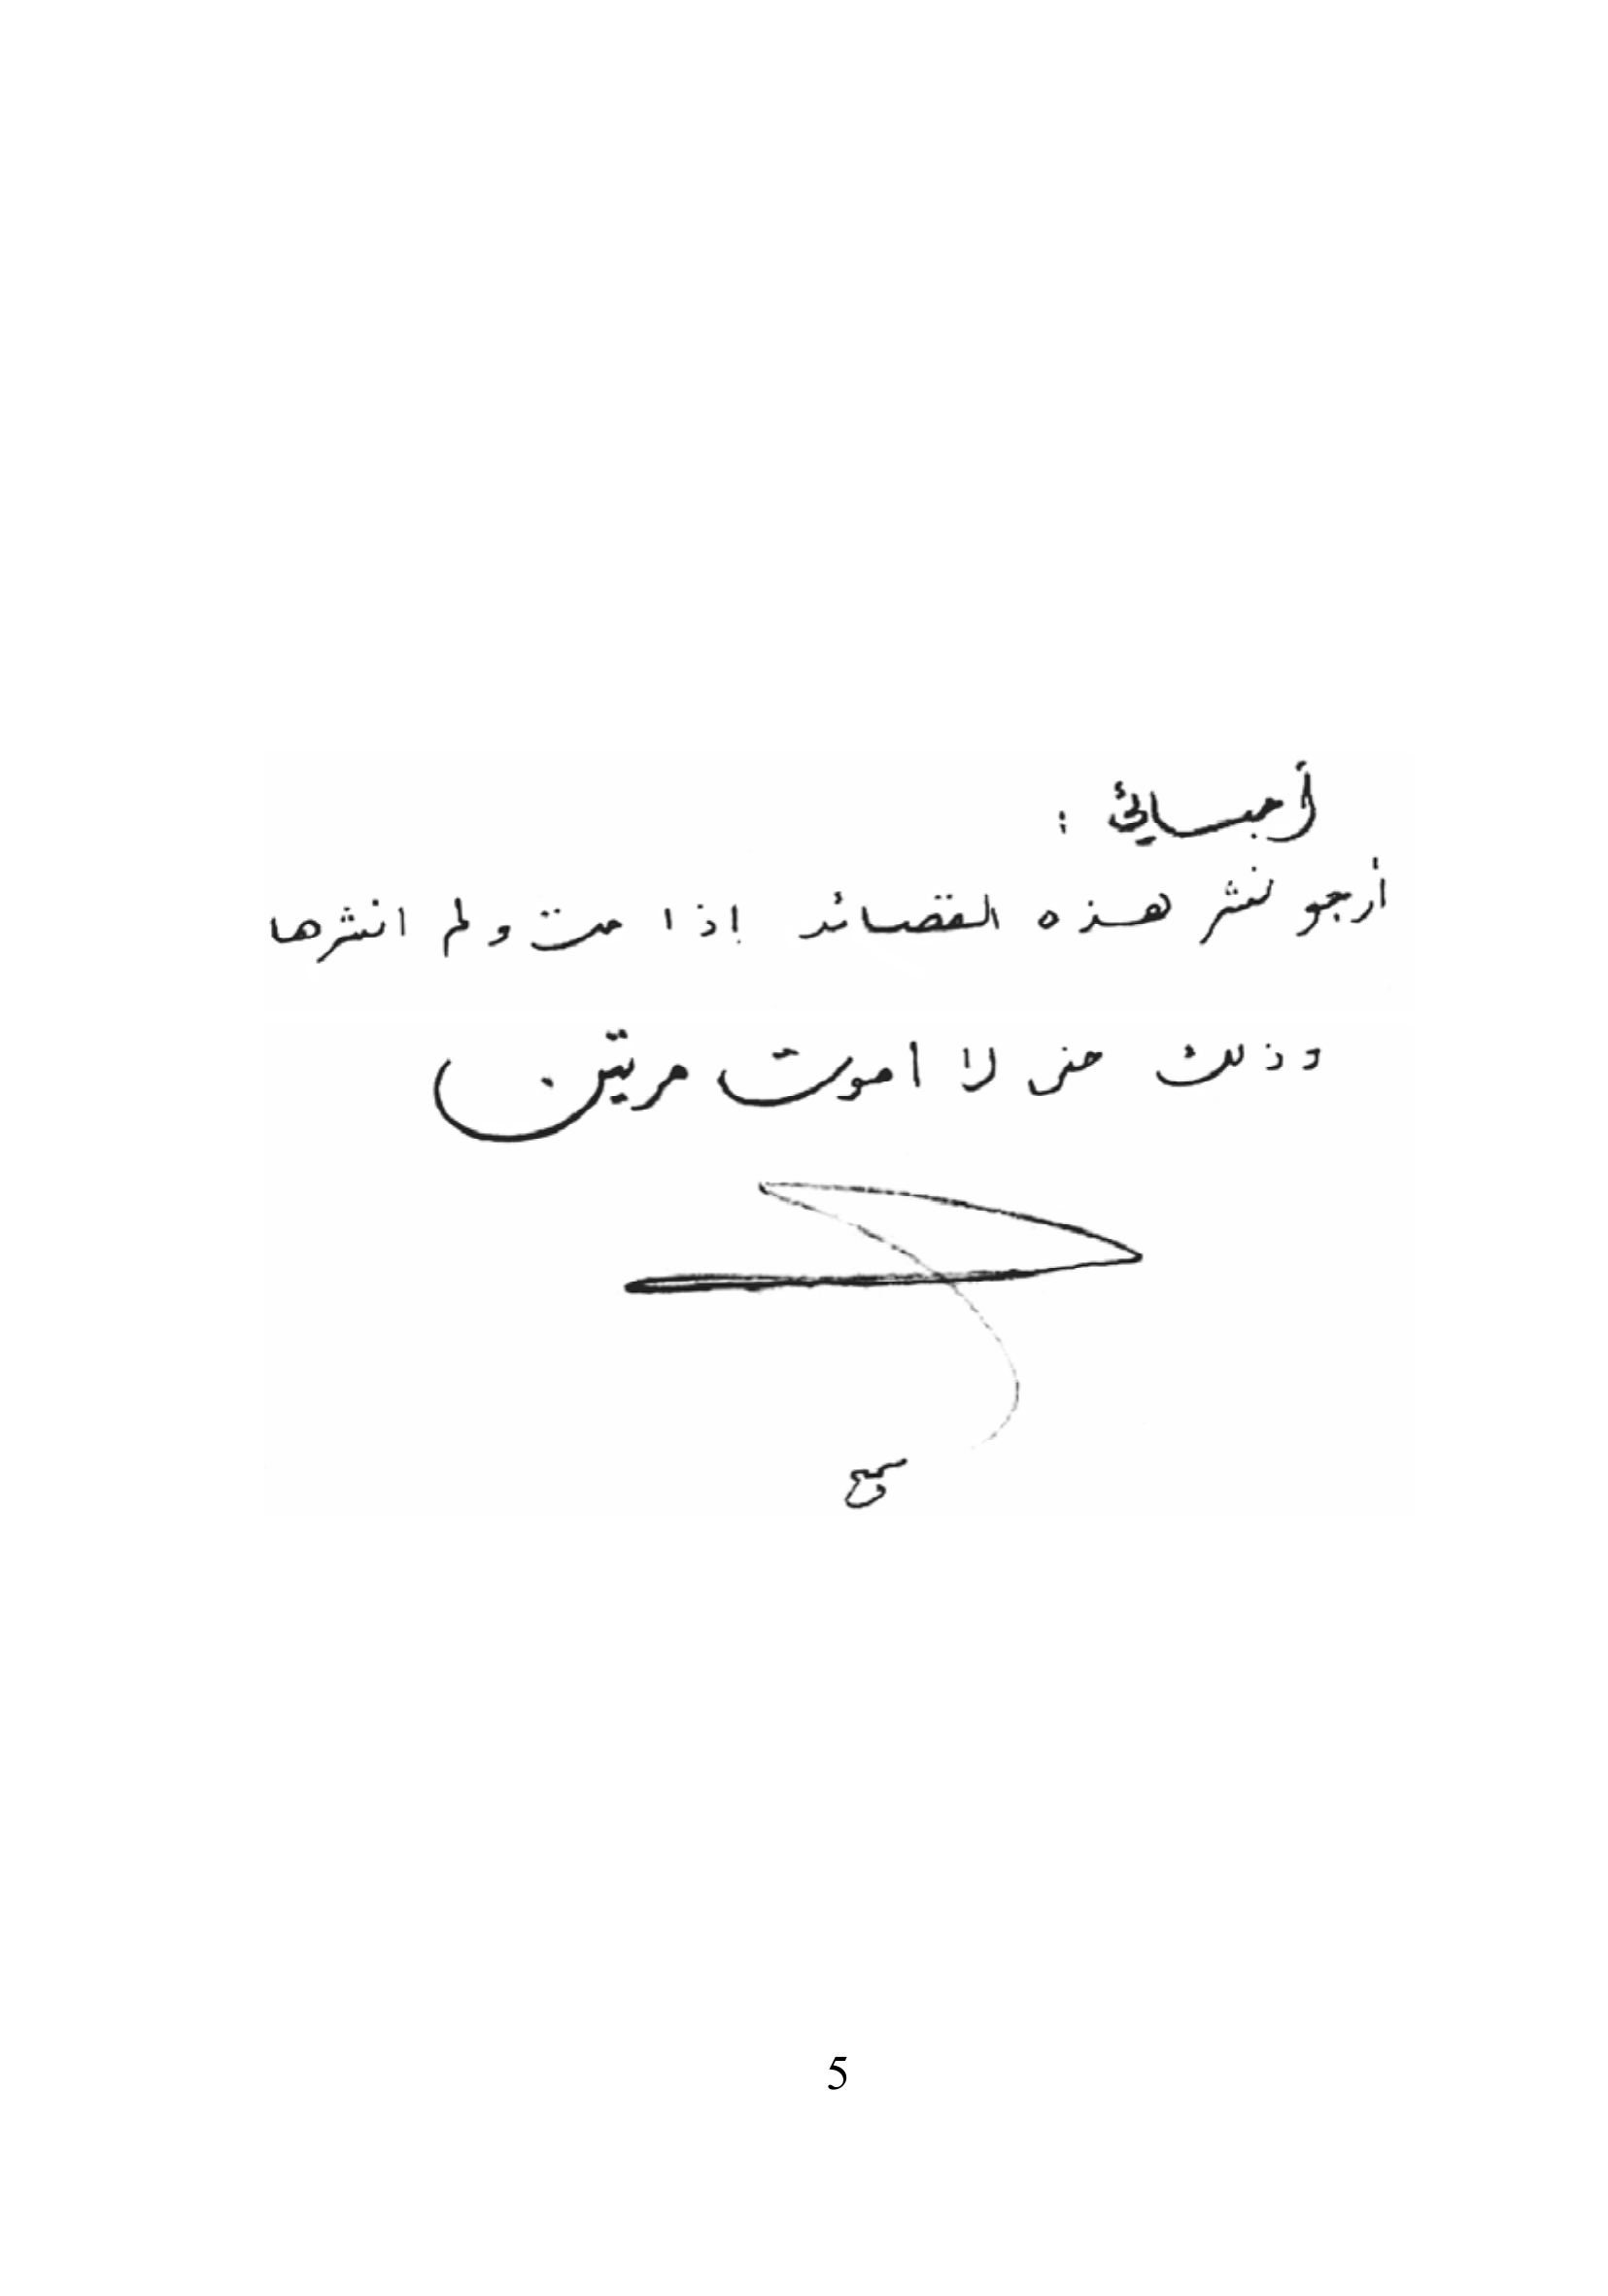 أحبائي :
أرجو نشر هذه القصائد إذا مت ولم انشرها
وذلك حتى لا اموت مرتين.
سميح
5